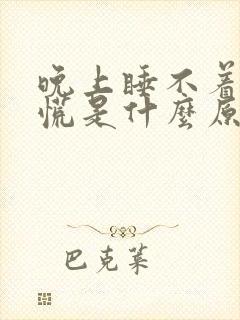 晚上睡不着
慌是什麼原
巴克萊